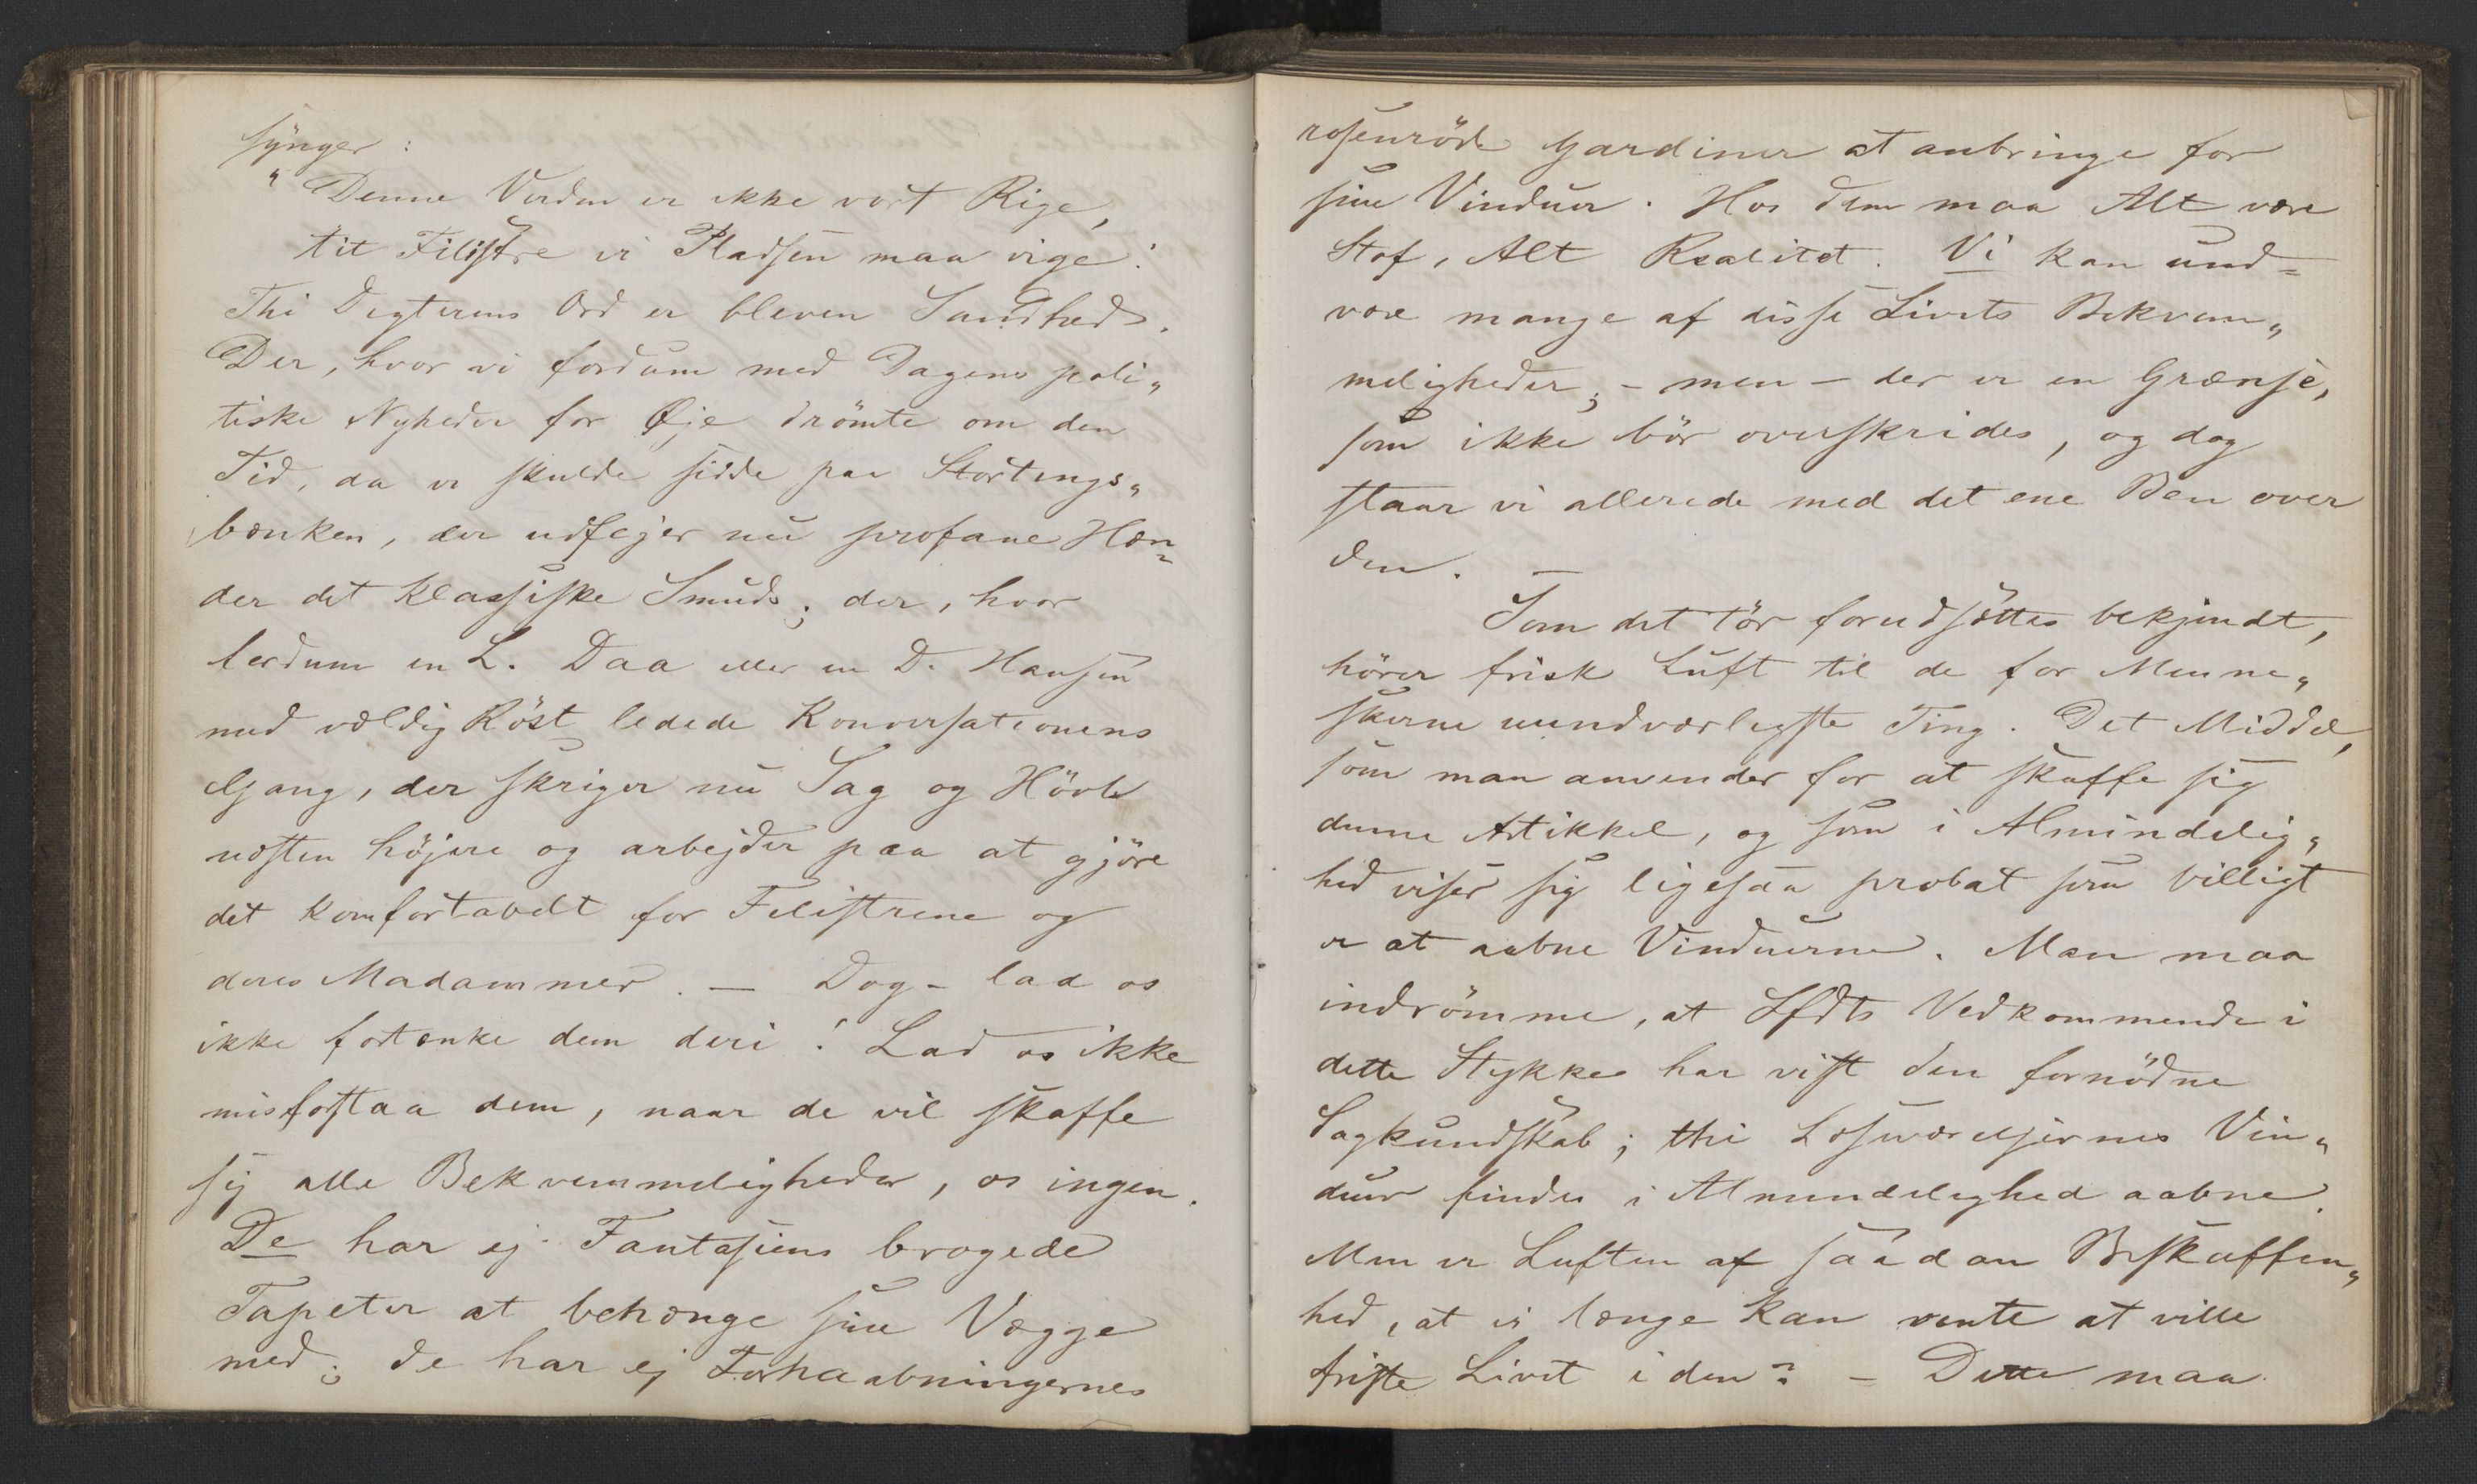 synger:
"Denne Verden er ikke vort Rige,
tit Filistre vi Pladsen maa vige!
Thi Digterens Ord er bleven Sandhed.
Der, hvor vi fordum med Dagens poli„
tiske Nyheder for Øje drömte om den
Tid, da vi skulde sidde paa Stortings„
bænken, der udfejer nu profane Hæn„
der det klassiske Smuds; der, hvor
fordum en L. Daa eller en D. Hansen
med vældig Röst ledede Konversationens
Gang, der skriger nu Sag og Hövl
næsten höjere og arbejder paa at gjöre
det komfortabelt for Filistrene og
deres Madammer. — Dog – lad os
ikke fortænke dem deri! Lad os ikke
misforstaa dem, naar de vil skaffe
sig alle Bekvemmeligheder, os ingen.
De har ej Fantasiens brogede
Tapeter at behænge sine Vægge
med; de har ej Forhaabningernes
rosenröde Gardiner at anbringe for
sine Vinduer. Hos dem maa Alt være
Stof, Alt Realitet. Vi kan und=
være mange af disse Livets Bekvem„
meligheder; – men – der er en Grænse,
som ikke bör overskrides, og dog
staar vi allerede med det ene Ben over
den.
Som det tör forudsættes bekjendt,
hörer frisk Luft til de for Menne„
skerne uundværligste Ting. Det Middel,
som man anvender for at skaffe sig
denne Artikkel, og som i Almindelig„
hed viser sig ligesaa probat som billigt
er at aabne Vinduerne. Man maa
indrömme, at Sfdts Vedkommende i
dette Stykke har vist den fornödne
Sagkundskab; thi Læseværelsernes Vin„
duer findes i Almindelighed aabne.
Men er Luften af saadan Beskaffen„
hed, at vi længe kan vente at ville
friste Livet i den? – Dette maa